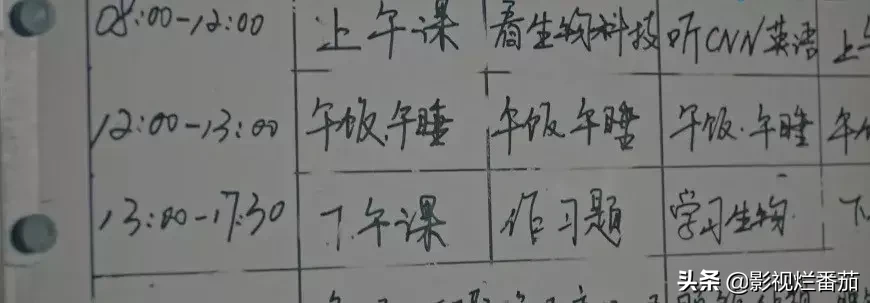 08:00-12:00 上午课 看生物科技 听CNN英语 上午
12:00-13:00 午饭.午睡 午饭.午睡 午饭.午睡
13:00-17:30 下午课 作习题 学习生物 下
头条 @影视烂番茄